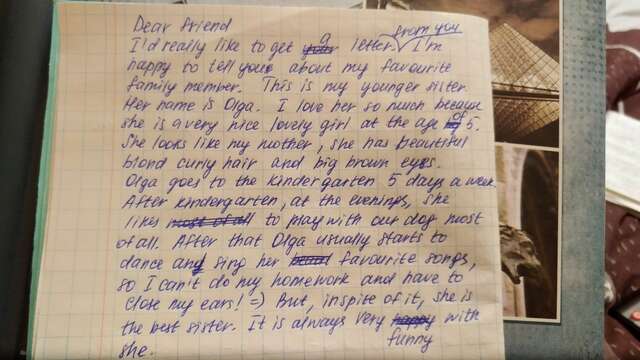 Dear friend
I'd really like to get a letter from you I'm
happy to tell you about my favourite
family member. This is my younger sister.
Her name is Olga. I love her so much because
she is a very nice lovely girl at the age of 5.
She looks like my mother, she has beautiful
blond curly hair and big brown eyes.
Olga goes to the kindergarten 5 days a week.
After kindergarten, at the evenings, she
likes most of all to play with our dog most
of all. After that Olga usually starts to
dance and sing her favourite songs,
so I can't do my homework and have to
close my ears! =) But, inspite of it, she is
the best sister. It is always very happy with
funny
she.